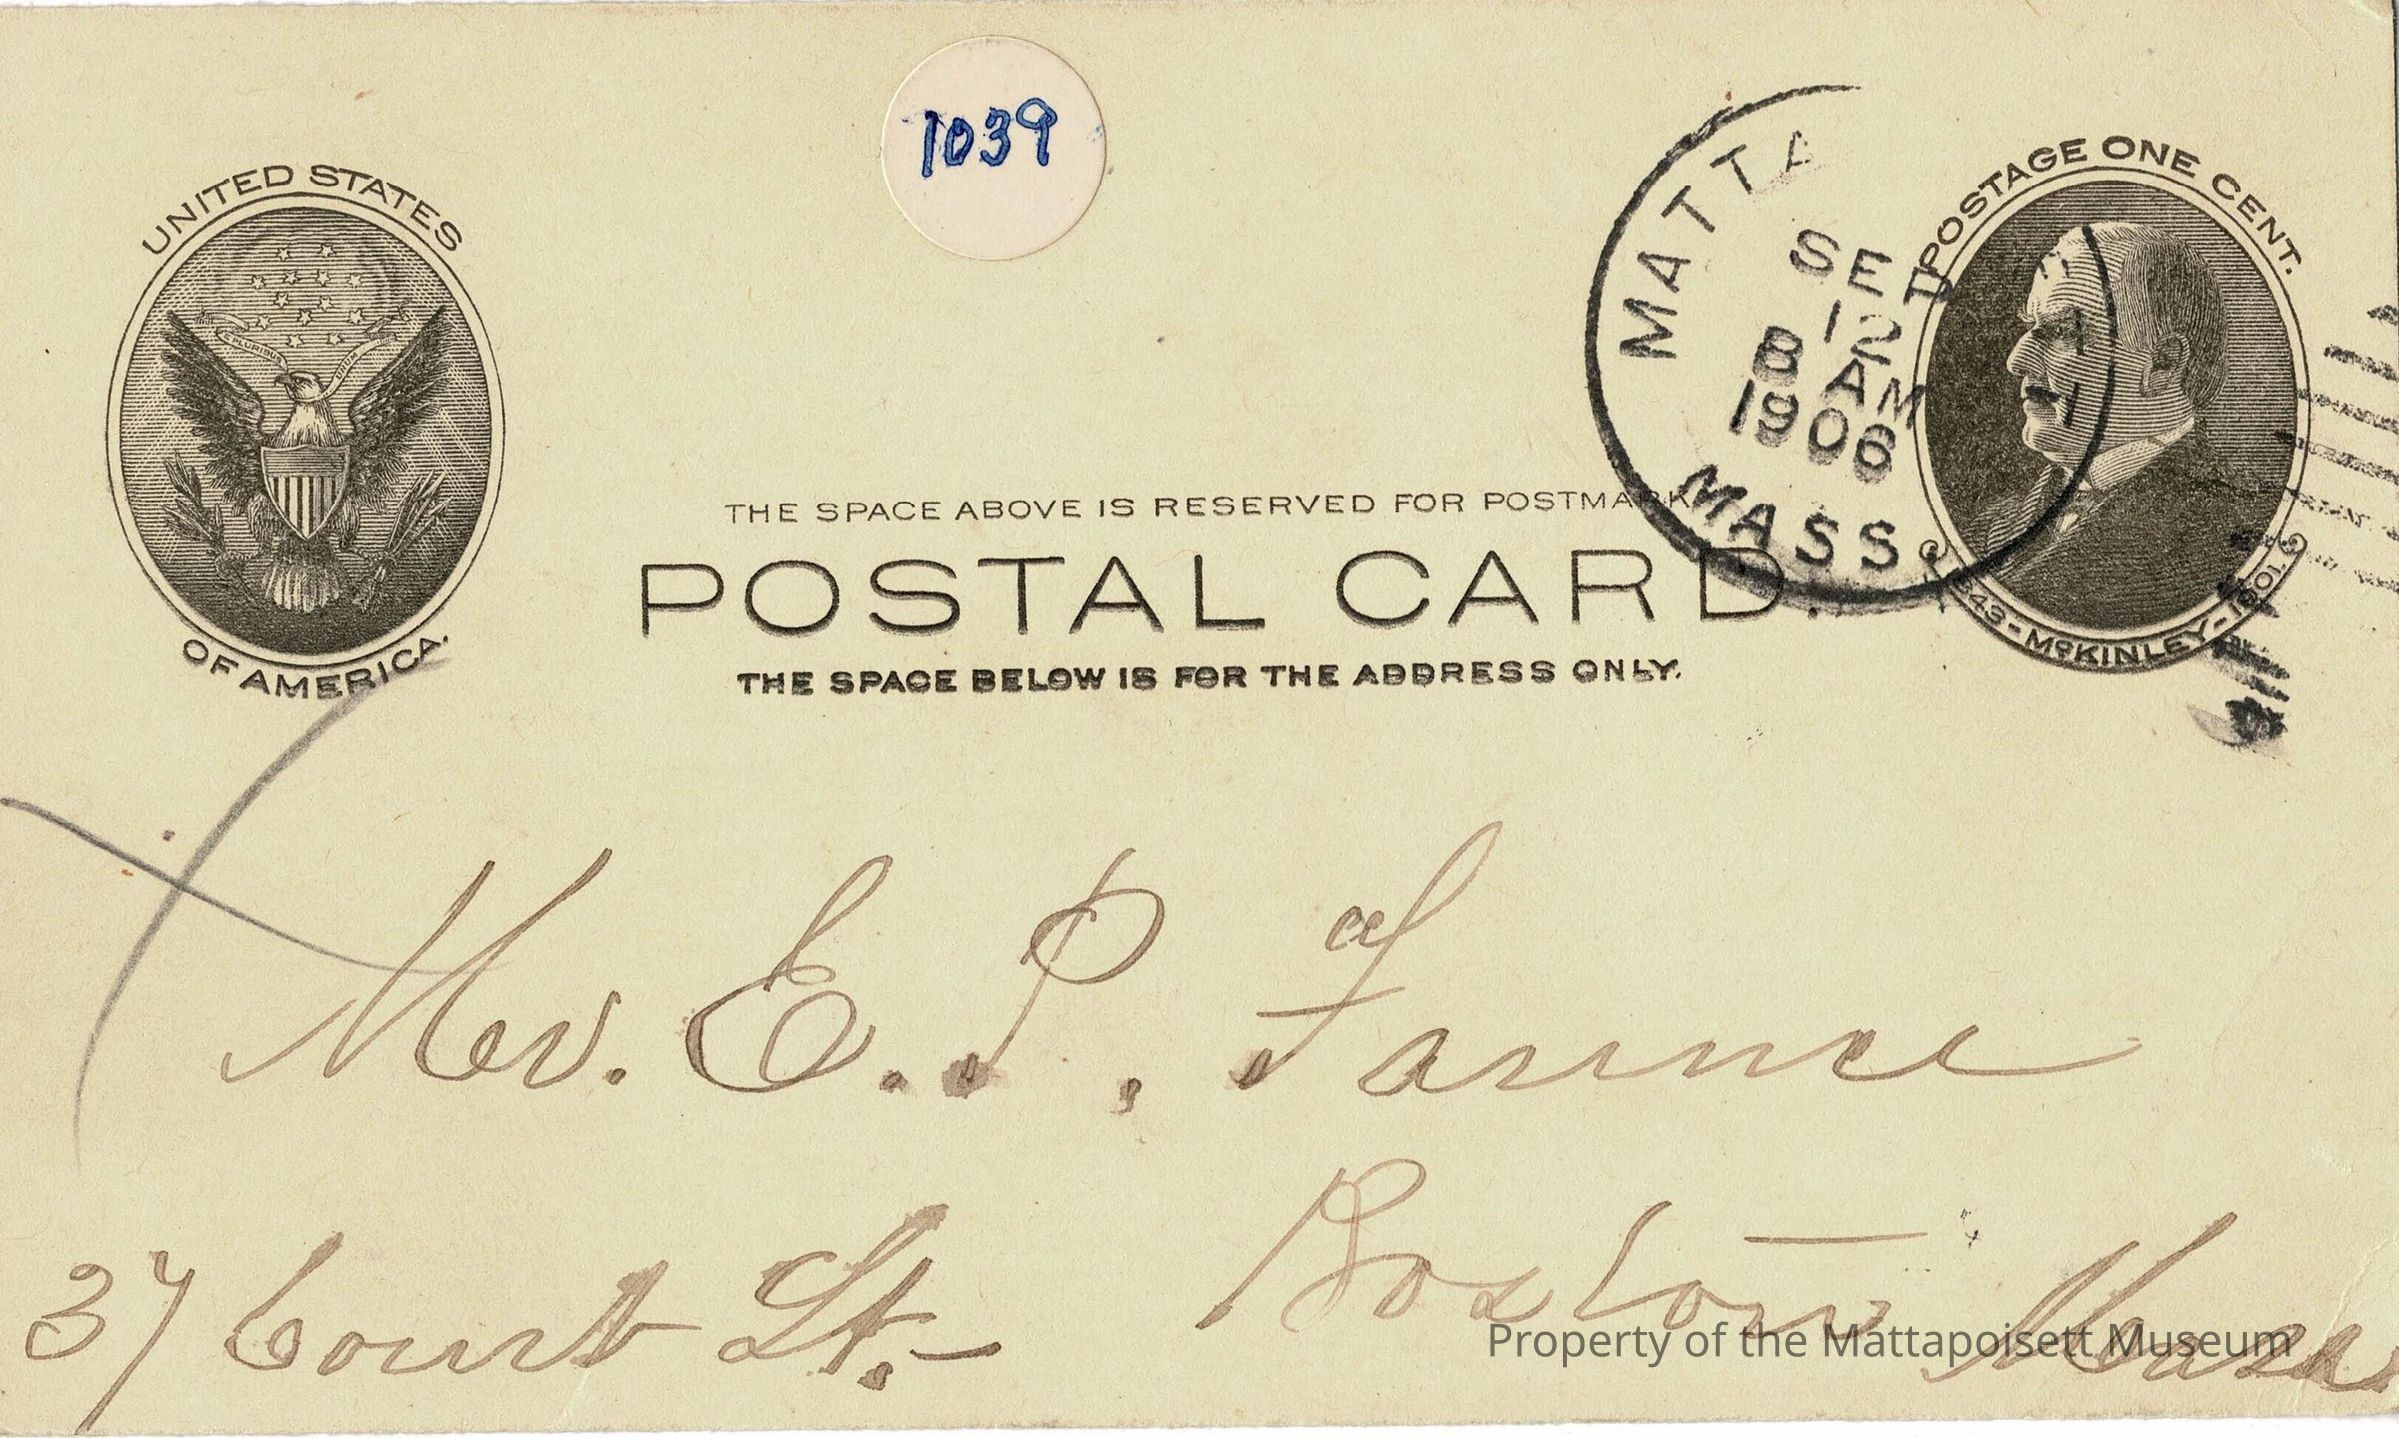 1039
UNITED STATES
E PLURIBUS UNUM
OF AMERICA.
MATTA
SEP
12
B AM
1906
MASS
POSTAGE ONE CENT.
1843-McKINLEY-1901.
THE SPACE ABOVE IS RESERVED FOR POSTMARK
POSTAL CARD.
THE SPACE BELOW IS FOR THE ADDRESS ONLY.
Mr. E. P.
37 Court St.- Boston Mass
Property of the Mattapoisett Museum